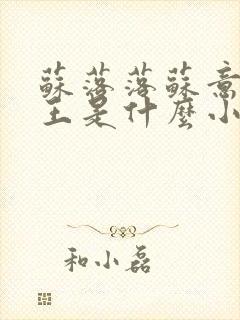 蘇落落蘇意
主是什麼小
和小磊